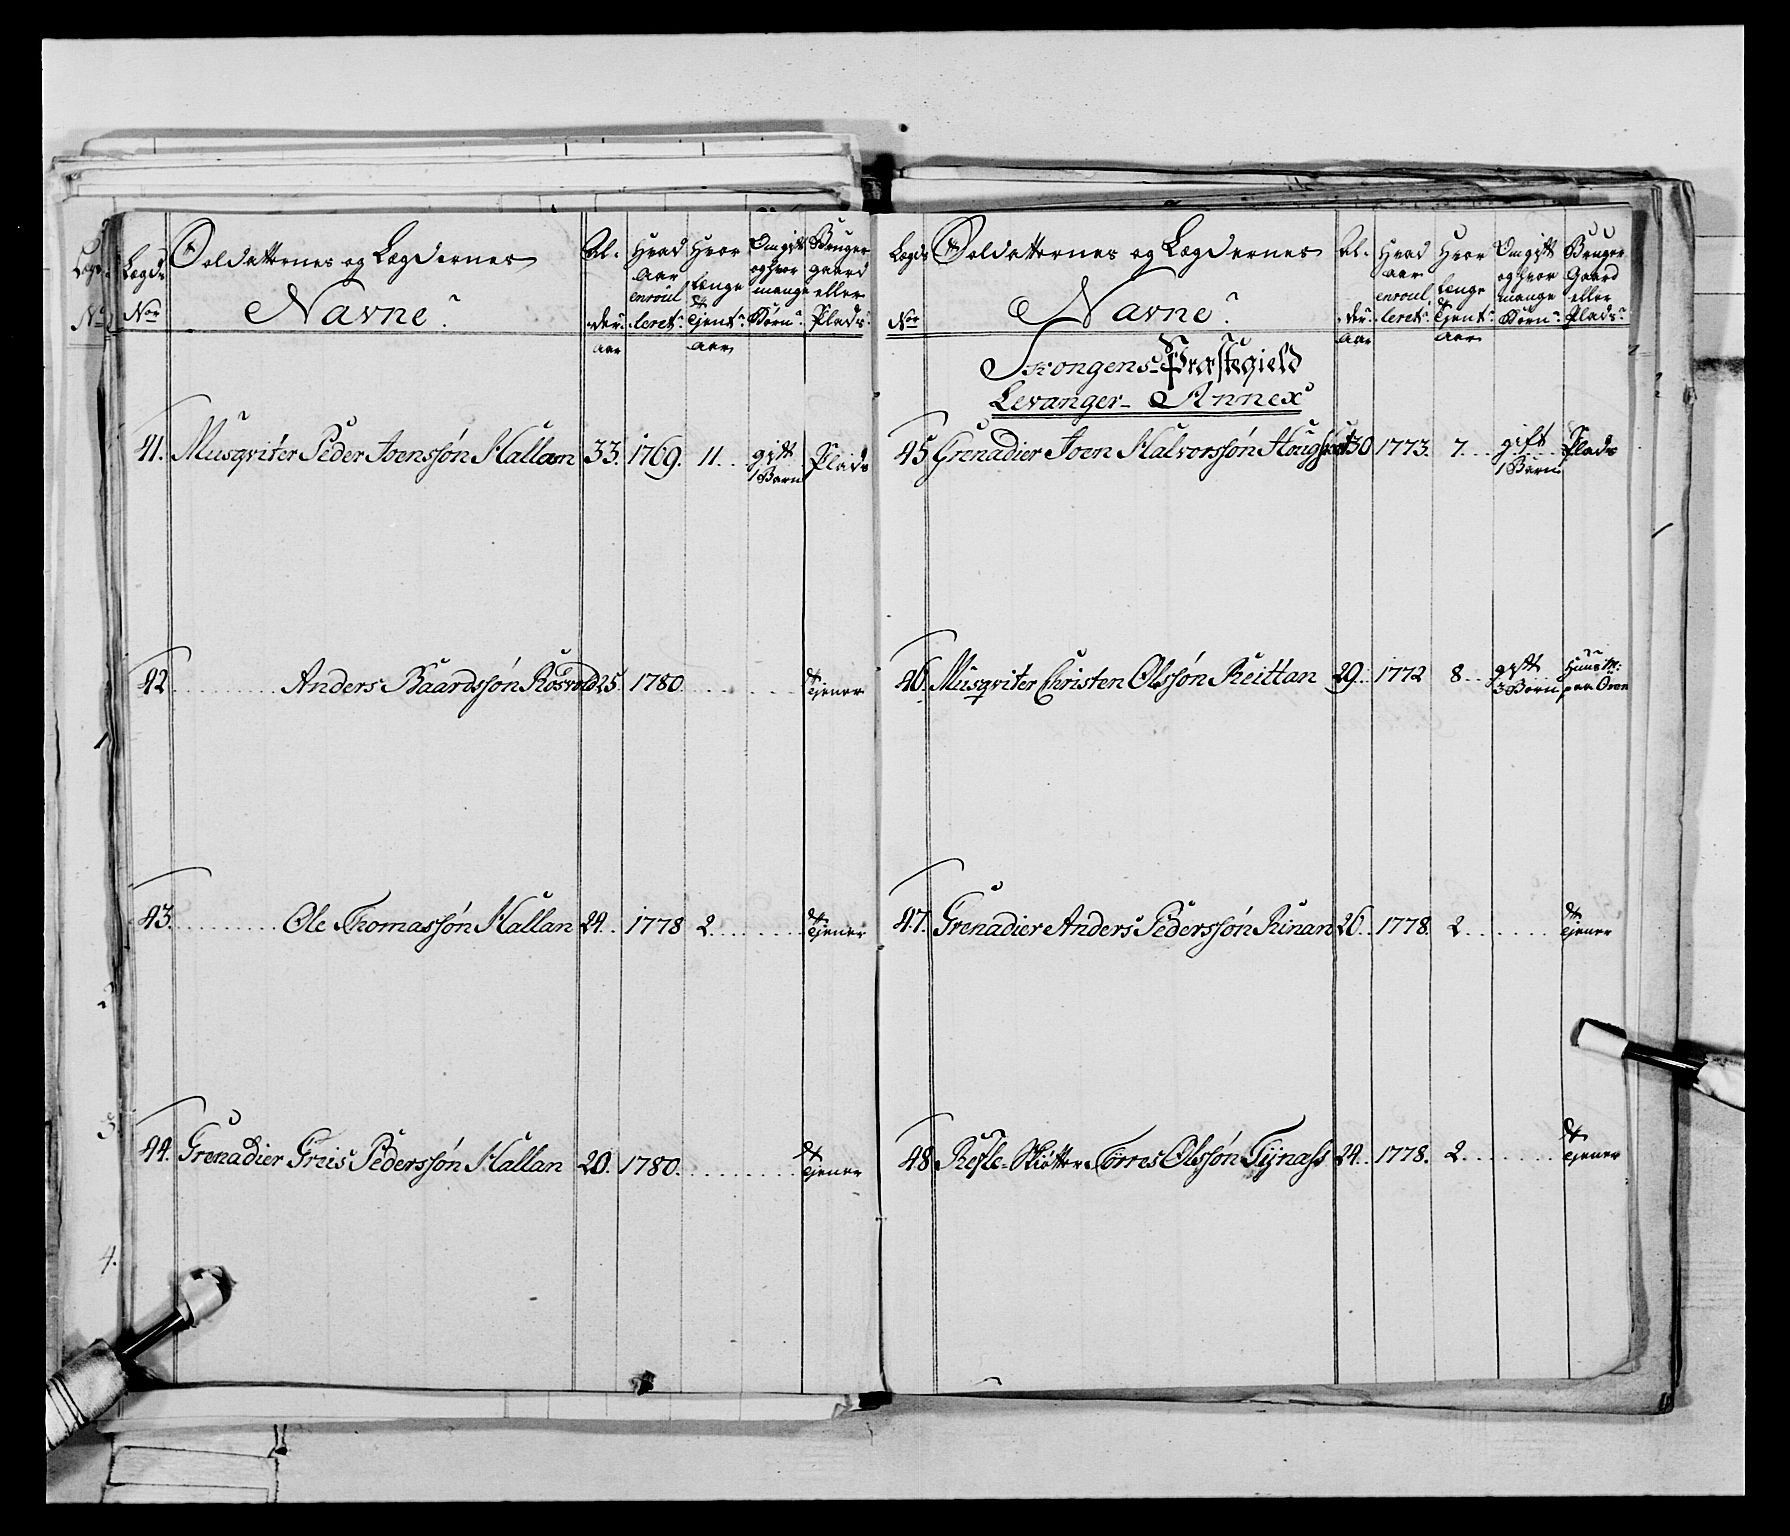 Lægde Nor Soldatternes og Lægdernes Navne. Al-der. aar Hvad aar enroulleret. Hvor længe Tjent. aar Om gift og hvor mange Børn. Bruger gaard eller Plads.
41. Musqviter Peder Joenssøn Hallan 33. 1769. 11. gift 1 Barn Plads
42. Anders Baardssøn Rosvold 25. 1780. Tjener
43. Ole Thomassøn Hallan 24. 1778 2. Tjener
44. Grenadier Greis Pederssøn Hallan 20. 1780. Tjener
Lægde Nor Soldatternes og Lægdernes Navne. Al-der. aar Hvad aar enroulleret. Hvor længe Tjent. aar Om gift og hvor mange Børn. Bruger Gaard eller Plads.
Skongens-Præstegield
Levanger- Annex
45. Grenadier Joen Halvorssøn 30 1773. 7. gift 1 Barn Plads
46. Musqviter Christen Olssøn Reittan 29. 1772 8. gift 3 Børn Huus M: paa Ören
47. Grenadier Anders Pederssøn Rinan 26. 1778. 2. Tjener
48. Refle-Skiøtter Torres Olssøn Tynæss 24. 1778. 2. Tjener